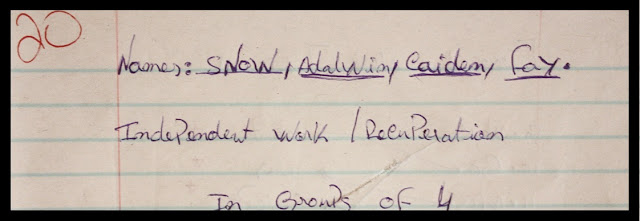 20
Names: SNOW, Adalwin, Caiden, Fay.
Independent work / Recuperation
In Groups of 4